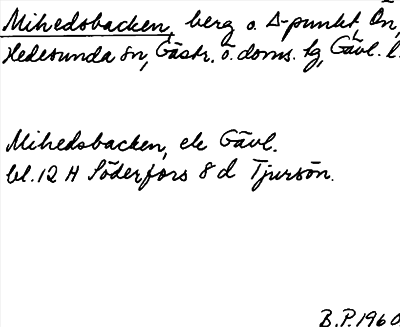 Mihedsbacken, berg o. Δ-punkt, Ön,
Hedesunda sn, Gästr. ö. doms. tg, Gävl. l.
Mihedsbacken, ek Gävl.
bl. 12 H Söderfors 8 d Tjursön.
B.P. 1960